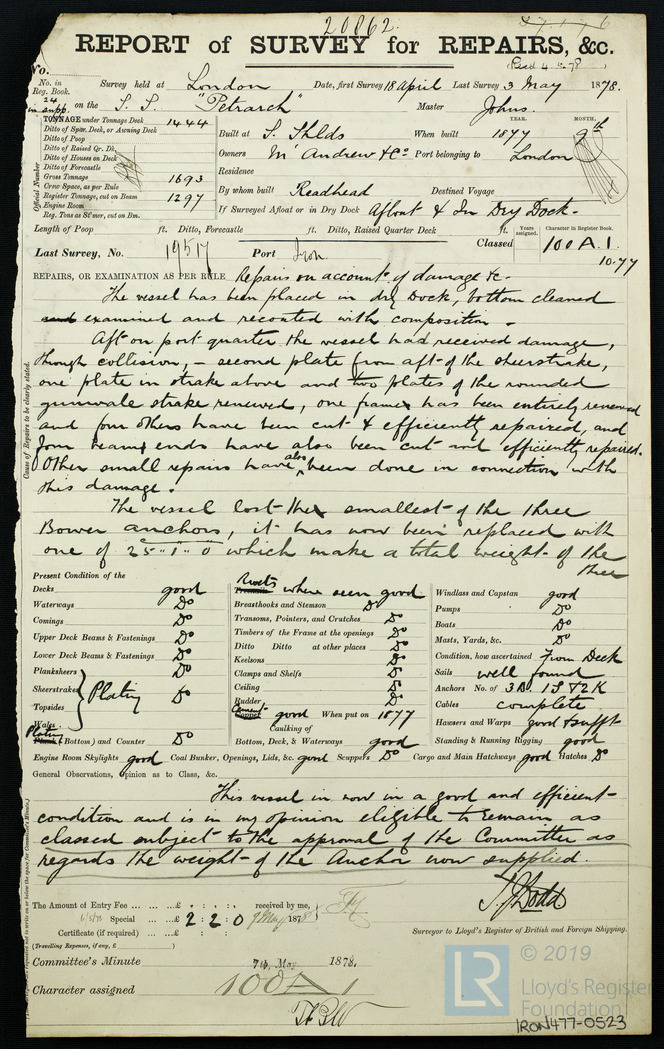 20862.
REPORT of SURVEY for REPAIRS, &c.
(Recd 4 5 78)
No.
No. in Reg. Book. Survey held at London Date, first Survey 18 April Last Survey 3 May 1878.
24 in supp. on the S. S. "Petrarch" Master Johns.
TONNAGE under Tonnage Deck 1444
Ditto of Spar Deck, or Awning Deck
Ditto of Poop
Ditto of Raised Qr. Dk.
Ditto of Houses on Deck
Ditto of Forecastle
Gross Tonnage 1693
Crew Space, as per Rule
Register Tonnage, cut on Beam 1297
Engine Room
Reg. Tons as St'mer, cut on Bm.
Official Number
YEAR. MONTH.
Built at S. Shlds When built 1877 9th
Owners McAndrew & Co Port belonging to London
Residence
By whom built Readhead Destined Voyage
If Surveyed Afloat or in Dry Dock Afloat & In Dry Dock.
Length of Poop ft. Ditto, Forecastle ft. Ditto, Raised Quarter Deck ft.
Years assigned. Character in Register Book.
Last Survey, No. 19517 Port Iron Classed 100 A.1.
10.77
REPAIRS, OR EXAMINATION AS PER RULE Repairs on account of damage &c.
The vessel has been placed in dry Dock, bottom cleaned
and examined and recoated with composition.
Aft on port quarter the vessel had received damage,
through collision, – second plate from aft of the sheerstrake,
one plate in strake above and two plates of the rounded
gunwale strake renewed, one frame has been entirely renewed
and four others have been cut & efficiently repaired, and
four beam ends have also been cut and efficiently repaired.
Other small repairs have also been done in connection with
this damage.
The vessel lost the smallest of the three
Bower anchors, it has now been replaced with
one of 25..1..0 which make a total weight of the
three
Cause of Repairs to be clearly stated.
Present Condition of the
Decks good
Waterways Do
Comings Do
Upper Deck Beams & Fastenings Do
Lower Deck Beams & Fastenings Do
Planksheers
Sheerstrakes
Topsides
Wales
Plating Do
Plating (Bottom) and Counter Do
Rivets where seen good
Breasthooks and Stemson Do
Transoms, Pointers, and Crutches Do
Timbers of the Frame at the openings Do
Ditto Ditto at other places Do
Keelsons Do
Clamps and Shelfs Do
Ceiling Do
Rudder Do
Cement good When put on 1877
Caulking of
Bottom, Deck, & Waterways good
Windlass and Capstan good
Pumps Do
Boats Do
Masts, Yards, &c. Do
Condition, how ascertained From Deck
Sails well found
Anchors No. of 3B. 1S & 2K
Cables complete
Hawsers and Warps good & sufft
Standing & Running Rigging good
Engine Room Skylights good Coal Bunker, Openings, Lids, &c. good Scuppers Do Cargo and Main Hatchways good Hatches Do
General Observations, opinion as to Class, &c.
This vessel is now in a good and efficient
condition and is in my opinion eligible to remain as
classed subject to the approval of the Committee as
regards the weight of the Anchor now supplied.
The Amount of Entry Fee ... ... ...£ : : received by me,
6/5/78 Special ... ...£ 2 : 2 : 0 9 May 1878
Certificate (if required) ... ...£ : :
(Travelling Expenses, if any, £ )
T. J. Dodd
Surveyor to Lloyd's Register of British and Foreign Shipping.
Committee's Minute 7th May 1878.
Character assigned 100 A 1
© 2019
LR
Lloyd's Register
Foundation
IRON477-0523